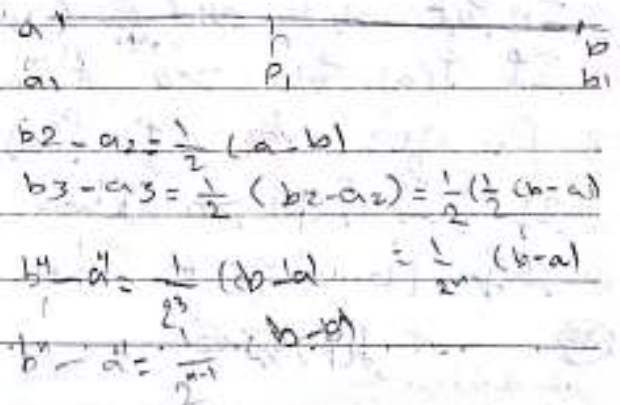 a b
a1 P1 b1
b2 - a2 = 1/2 (a - b)
b3 - a3 = 1/2 (b2 - a2) = 1/2 (1/2 (b - a)
b4 - a4 = 1/2^3 (b - a) = 1/2^n (b - a)
b^n - a^n = 1/2^(n-1)